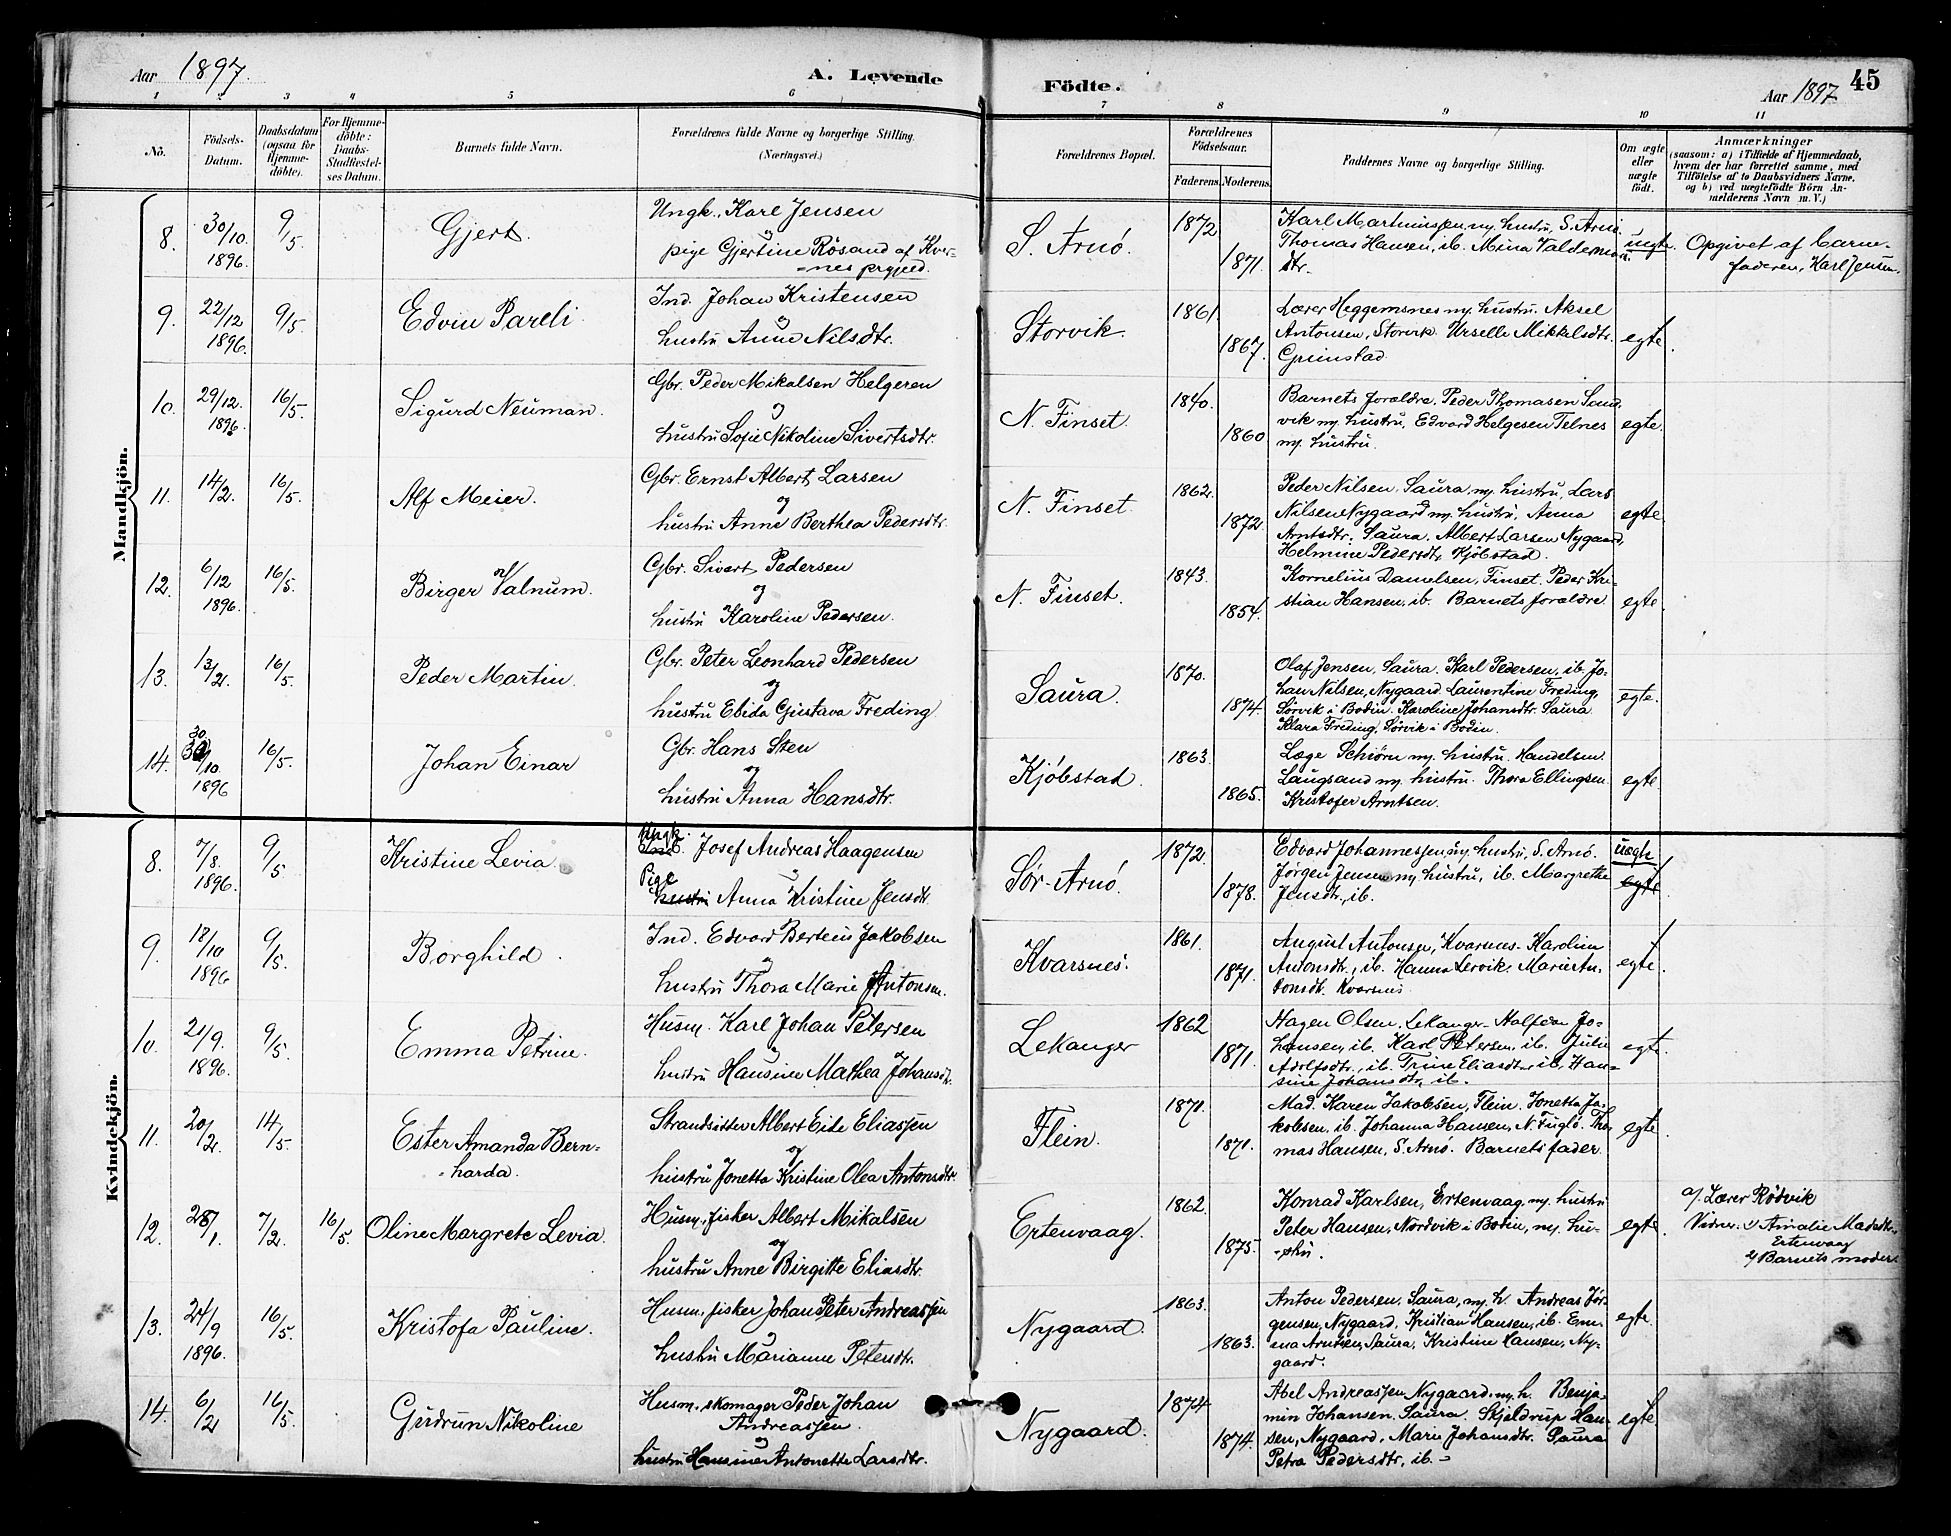 Aar 1897.
A. Levende Födte.
Aar 1897
45
1 2 3 4 5 6 7 8 9 10 11
No. Födsels-Datum. Daabsdatum (ogsaa för Hjemme-döbte). For Hjemme-döbte: Daabs-Stadfæstel-ses Datum. Barnets fulde Navn. Forældrenes fulde Navne og borgerlige Stilling. (Næringsvei.) Forældrenes Bopæl. Forældrenes Födselsaar. Faderens. Moderens. Faddernes Navne og borgerlige Stilling. Om ægte eller uægte födt. Anmærkninger (saasom: a) i Tilfælde af Hjemmedaab, hvem der har forrettet samme, med Tilföielse af to Daabsvidners Navne, og b) ved uægtefödte Börn An-melderens Navn m. V.)
Mandkjön.
8. 30/10. 1896. 9/5. Gjert. Ungk. Karl Jensen og pige Gjertine Rösand af Kver-nes prgjeld. S. Arnö. 1872. 1871. Karl Martinussen, my. hustru, S. Arnö. Thomas Hansen, ib. Mina Valdemars dtr. uegte. Opgivet af barne-faderen, Karl Jensen.
9. 22/12 1896. 9/5. Edvin Pareli. Ind. Johan Kristensen og hustru Anne Nilsdtr. Storvik. 1861. 1867. Lærer Heggemsnes my. hustru. Aksel Antonsen, Storvik. Urselle Mikkalsdtr. Grimstad. egte.
10. 29/12. 1896. 16/5. Sigurd Neuman. Gbr. Peder Mikalsen Helgeren og hustru Sofie Nikoline Sivertsdtr. N. Finset. 1840. 1860. Barnets forældre. Peder Thomasen Sand-vik my. hustru, Edvard Helgesen Telnes my. hustru. egte.
11. 14/2. 16/5. Alf Meier. Gbr. Ernst Albert Larsen og hustru Anne Berthea Pedersdtr. N. Finset. 1862. 1872. Peder Nilsen, Saura, my. hustru, Lars Nilsen Nygaard my. hustru, Anna Arntsdtr. Saura. Albert Larsen Nygaard, Helmine Pedersdtr. Kjöbstad. egte.
12. 6/12 1896. 16/5. Birger Valnum. Gbr. Sivert Pedersen og hustru Karoline Pedersen. N. Finset. 1843. 1854. Kornelius Danielsen, Finset. Peder Kri-stian Hansen, ib. Barnets forældre. egte.
13. 13/2. 16/5. Peder Martin. Gbr. Peter Leonhard Pedersen og hustru Elida Gjustava Freding. Saura. 1870. 1874. Olaf Jensen, Saura. Karl Pedersen, ib. Jo-han Nilsen, Nygaard. Laurentine Freding, Sørvik i Bodin. Karoline Johansdtr. Saura. Klara Freding, Sørvik i Bodin. egte.
14. 30/10. 1896 16/5. Johan Einar Gbr. Hans Sten og hustru Anna Hansdtr. Kjöbstad. 1863. 1865. Læge Schiörn my. hustru. Handelsm. Laugsand my. hustru. Thora Ellingsen. Kristofer Arntsen. egte
Kvindekjön.
8. 7/8. 1896. 9/5. Kristine Levia. Ungk. Josef Andreas Haagensen og Pige hustru Anna Kristine Jensdtr. Sör-Arnö. 1872. 1878. Edvard Johannessen, my. hustru, S. Arnö. Jörgen Jensen my. hustru, ib. Margrethe Jensdtr., ib. uegte. egte
9. 18/10 1896 9/5. Borghild. Ind. Edvard Berteus Jakobsen og hustru Thora Marie Antonsen. Kvarsnes. 1861. 1871. August Antonsen, Kvarsnes. Karoline Antonsdtr., ib. Hanna Lervik. Marie An-tonsdtr. Kvarsnes. egte.
10. 21/9. 1896. 9/5. Emma Petrine. Husm. Karl Johan Petersen og hustru Hansine Mathea Johansdtr. Lekanger 1862 1871. Hagen Olsen, Lekanger. Halfdan Jo-hansen, ib. Karl Petersen, ib. Julie Adolfsdtr., ib. Trine Eliasdtr., ib. Han-sine Johansdtr., ib. egte.
11. 20/2. 14/5. Ester Amanda Bern-harda. Strandsitter Albert Eide Eliassen og hustru Jonetta Kristine Olea Antonsdtr. Flein. 1871. 1871. Mad. Karen Jakobsen, Flein. Jonetta Ja-kobsen, ib. Johanna Hansen, N. Fuglö. Tho-mas Hansen, S. Arnö. Barnets fader. egte.
12. 28/1. 7/2. 16/5. Oline Margrete Levia. Husm., fisker Albert Mikalsen og hustru Anne Birgitte Eliasdtr. Ertenvaag. 1862. 1875. Konrad Karlsen, Ertenvaag, my. hustru Peter Hansen, Nordvik i Bodin, my. hu-stru. egte. a/. Lærer Rödvik Vidner: 1/ Amalie Madsdtr., Ertenvaag 2/ Barnets moder.
13. 24/9 1896. 16/5. Kristofa Pauline. Husm., fisker Johan Peter Andreassen og hustru Marianne Petersdtr. Nygaard. 1863. 1863. Anton Pedersen, Saura, my. h. Andreas Jör-gensen, Nygaard, Kristian Hansen, ib. Em-ma Arntsen, Saura, Kristine Hansen, Ny-gaard. egte.
14. 6/2. 16/5. Gudrun Nikoline Husm., skomager Peder Johan Andreassen. og hustru Hansine Antonette Larsdtr. Nygaard. 1874 1874. Abel Andreassen, Nygaard, my. h. Benja-min Johansen, Saura. Skjeldrup Han-sen, Nygaard, Marie Johansdtr. Saura Petra Pedersdtr., ib. egte.